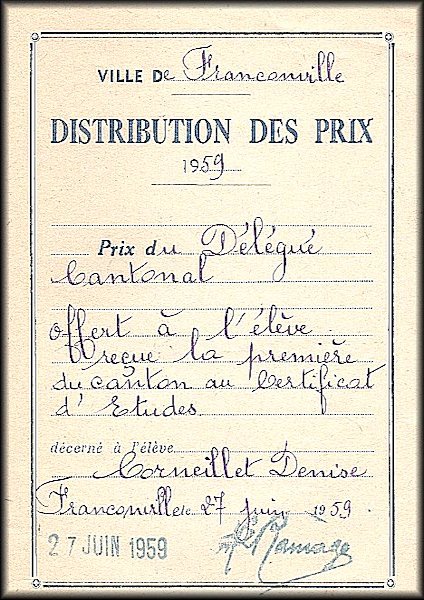 VILLE De Franconville
DISTRIBUTION DES PRIX
1959
Prix du Délégué
Cantonal
offert à l'élève
reçue la première
du canton au Certificat
d'Etudes
décerné à l'élève
Corneillet Denise
Franconville le 27 juin 1959.
27 JUIN 1959